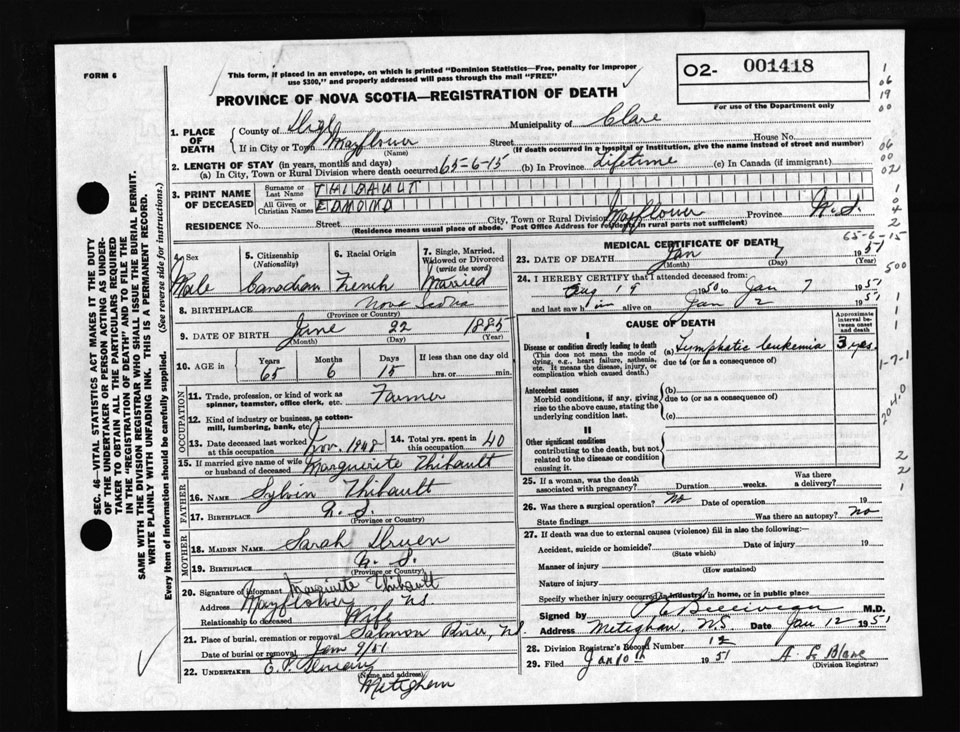 FORM 6
This form, if placed in an envelope, on which is printed "Dominion Statistics—Free, penalty for improper
use $300," and properly addressed will pass through the mail "FREE"
O2- 001418
For use of the Department only
PROVINCE OF NOVA SCOTIA—REGISTRATION OF DEATH
1. PLACE OF DEATH
County of Digby Municipality of Clare
If in City or Town Mayflower (Name) Street House No.
(If death occurred in a hospital or institution, give the name instead of street and number)
2. LENGTH OF STAY (in years, months and days)
(a) In City, Town or Rural Division where death occurred 65-6-15 (b) In Province Lifetime (c) In Canada (if immigrant)
3. PRINT NAME OF DECEASED
Surname or Last Name THIBAULT
All Given or Christian Names EDMOND
RESIDENCE No. Street City, Town or Rural Division Mayflower Province N.S.
(Residence means usual place of abode. Post Office Address for residents in rural parts not sufficient)
Sex Male
5. Citizenship (Nationality) Canadian
6. Racial Origin French
7. Single, Married, Widowed or Divorced (write the word) Married
8. BIRTHPLACE Nova Scotia
(Province or Country)
9. DATE OF BIRTH June 22 1885
(Month) (Day) (Year)
10. AGE in Years 65 Months 6 Days 15 If less than one day old
hrs. or min.
OCCUPATION
11. Trade, profession, or kind of work as spinner, teamster, office clerk, etc. Farmer
12. Kind of industry or business, as cotton-mill, lumbering, bank, etc.
13. Date deceased last worked at this occupation Nov. 1948
14. Total yrs. spent in this occupation 40
15. If married give name of wife or husband of deceased Marguerite Thibault
FATHER
16. NAME Sylvin Thibault
17. BIRTHPLACE N.S.
(Province or Country)
MOTHER
18. MAIDEN NAME Sarah
19. BIRTHPLACE N.S.
(Province or Country)
20. Signature of informant Marguerite Thibault
Address Mayflower NS.
Relationship to deceased Wife
21. Place of burial, cremation or removal Salmon River, NS
Date of burial or removal Jan 9/51
22. UNDERTAKER
(Name and address)
Meteghan
MEDICAL CERTIFICATE OF DEATH
23. DATE OF DEATH Jan 7 1951
(Month) (Day) (Year)
24. I HEREBY CERTIFY that I attended deceased from:
Aug 19 1950 to Jan 7 1951
and last saw him alive on Jan 2 1951
CAUSE OF DEATH
Approximate interval between onset and death
I
Disease or condition directly leading to death
(This does not mean the mode of dying, e.g., heart failure, asthenia, etc. It means the disease, injury, or complication which caused death.)
(a) Lymphatic leukemia 3 yrs.
due to (or as a consequence of)
Antecedent causes
Morbid conditions, if any, giving rise to the above cause, stating the underlying condition last.
(b)
due to (or as a consequence of)
(c)
II
Other significant conditions
contributing to the death, but not related to the disease or condition causing it.
25. If a woman, was the death associated with pregnancy? Duration weeks. Was there a delivery?
26. Was there a surgical operation? No Date of operation 19
State findings Was there an autopsy? No
27. If death was due to external causes (violence) fill in also the following:—
Accident, suicide or homicide? Date of injury 19
(State which)
Manner of injury
(How sustained)
Nature of injury
Specify whether injury occurred in industry, in home, or in public place
Signed by M.D.
Address Meteghan, NS. Date Jan 12 1951
28. Division Registrar's Record Number 12
29. Filed Jan 10th 1951
(Division Registrar)
SEC. 46—VITAL STATISTICS ACT MAKES IT THE DUTY
OF THE UNDERTAKER OR PERSON ACTING AS UNDER-
TAKER TO OBTAIN ALL THE PARTICULARS REQUIRED
IN THE "REGISTRATION OF DEATH" AND TO FILE THE
SAME WITH THE DIVISION REGISTRAR WHO SHALL ISSUE THE BURIAL PERMIT.
WRITE PLAINLY WITH UNFADING INK. THIS IS A PERMANENT RECORD.
Every item of information should be carefully supplied. (See reverse side for instructions.)
1
06
19
00
06
00
02
1
0
4
2
65-6-15
500
1
1
1
1-7-1
0
204.0
2
2
1